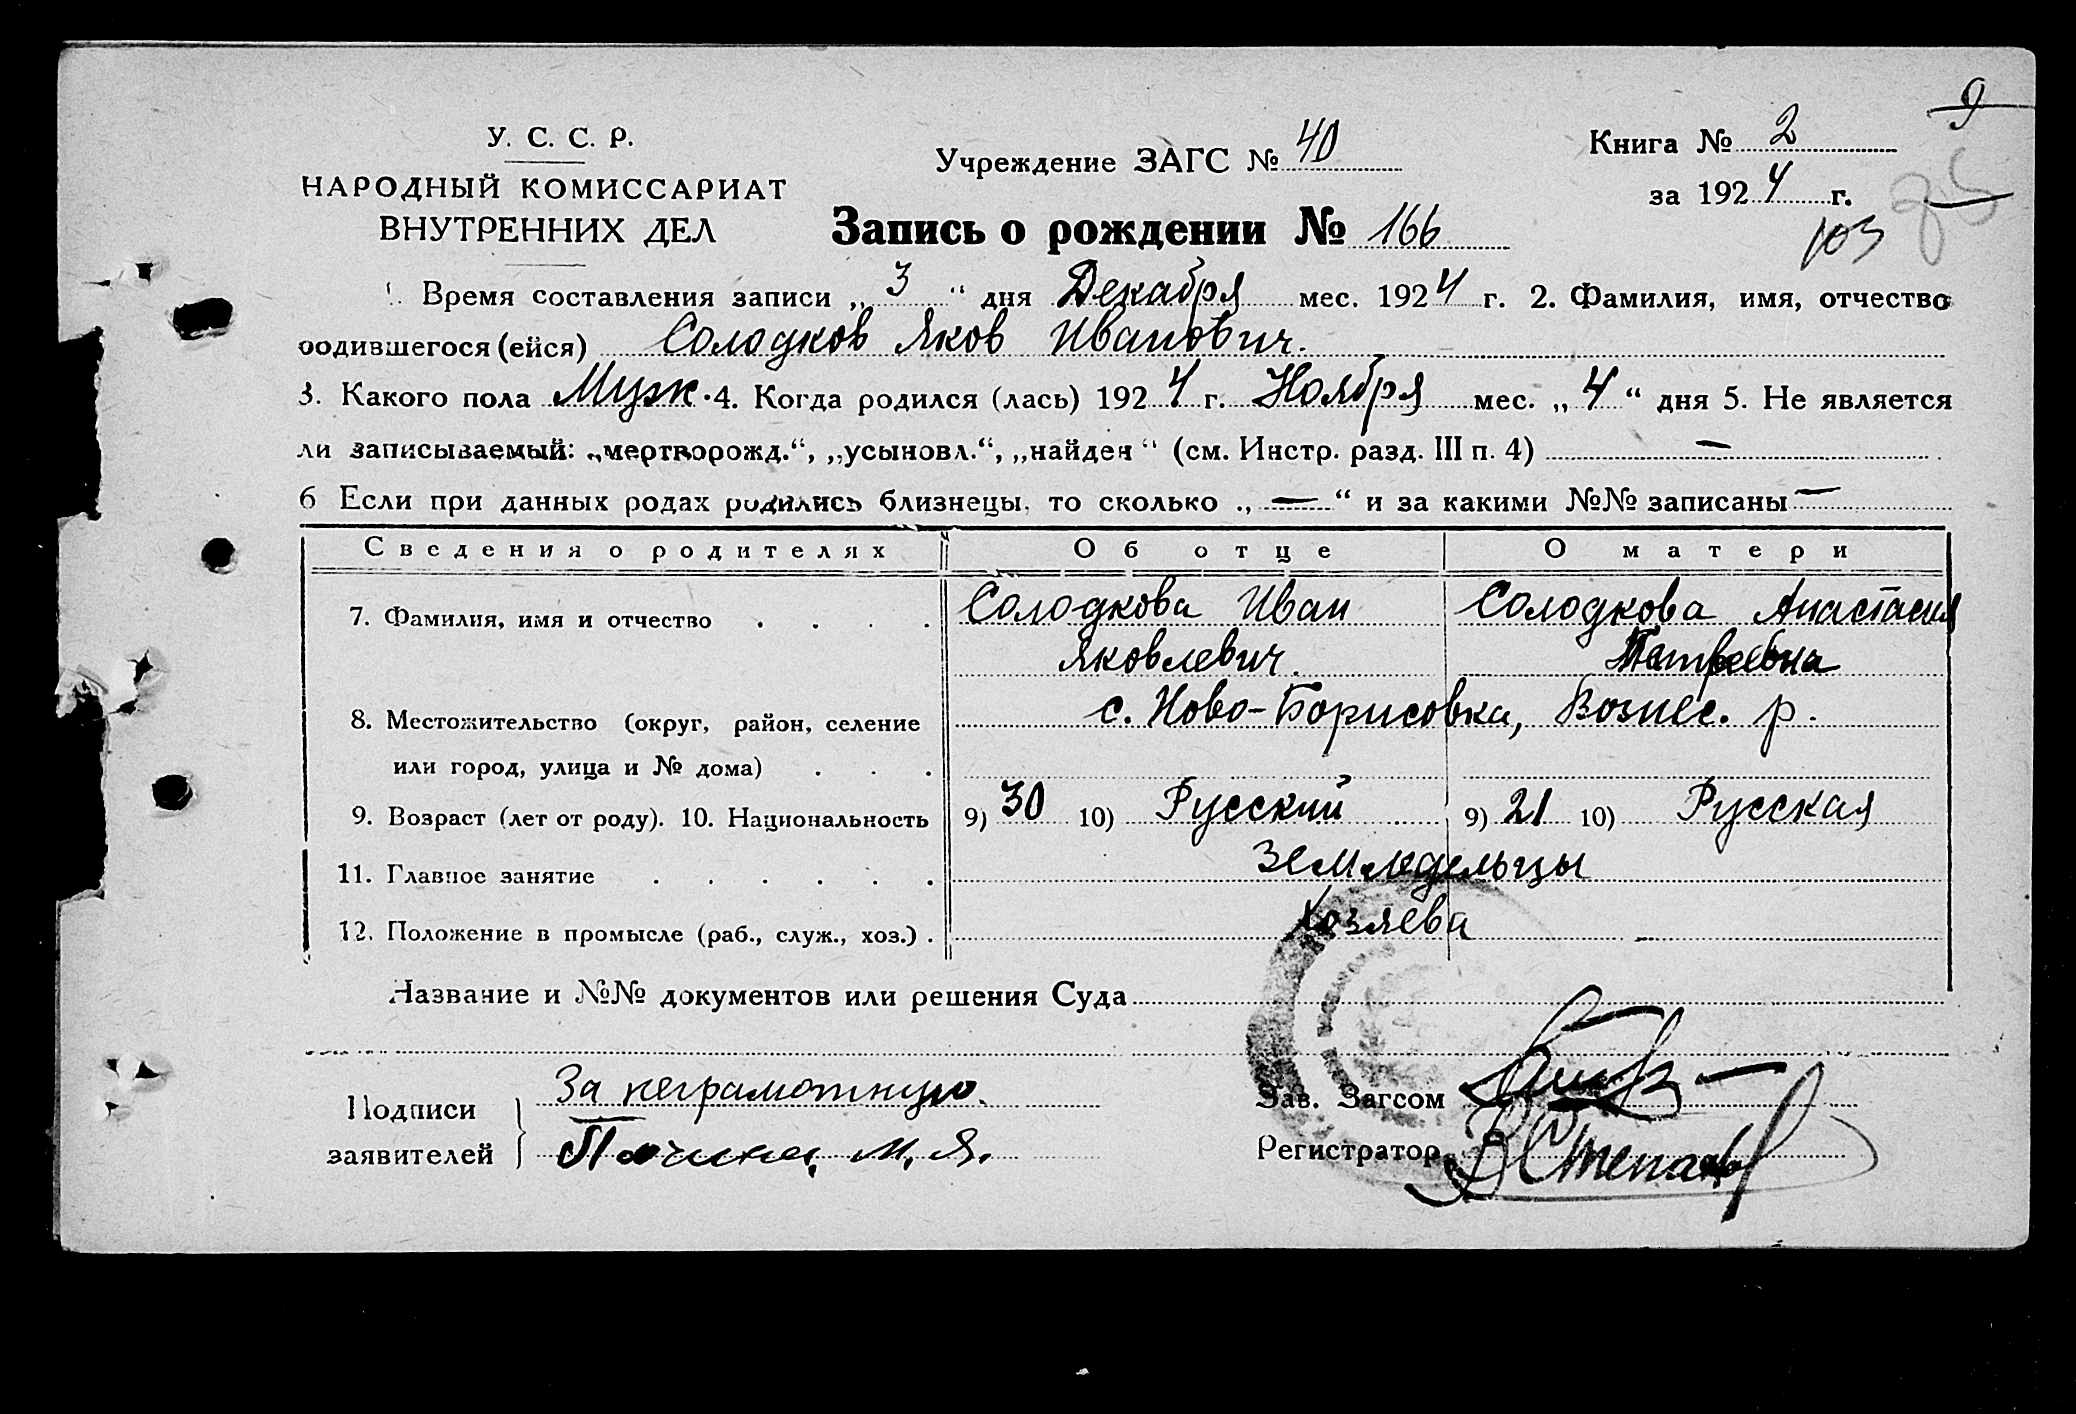 9
У. С. С. Р.
НАРОДНЫЙ КОМИССАРИАТ
ВНУТРЕННИХ ДЕЛ
Учреждение ЗАГС № 40
Книга № 2
за 1924 г.
85
103
Запись о рождении № 166
1. Время составления записи „3“ дня Декабря мес. 1924 г. 2. Фамилия, имя, отчество
родившегося (ейся) Солодков Яков Иванович.
3. Какого пола Муж. 4. Когда родился (лась) 1924 г. Ноября мес. „4“ дня 5. Не является
ли записываемый: „мертворожд.“, „усыновл.“, „найден“ (см. Инстр. разд. III п. 4) —
6 Если при данных родах родились близнецы, то сколько „—“ и за какими №№ записаны —
Сведения о родителях Об отце О матери
7. Фамилия, имя и отчество . . . . Солодкова Иван Солодкова Анастасия
Яковлевич.
8. Местожительство (округ, район, селение с. Ново-Борисовка, Вознес. р.
или город, улица и № дома) . . .
9. Возраст (лет от роду). 10. Национальность 9) 30 10) Русский 9) 21 10) Русская
11. Главное занятие . . . . . . Земледельцы
12. Положение в промысле (раб., служ., хоз.) . Хозяева
Название и №№ документов или решения Суда
Подписи заявителей За неграмотную.
М. Я.
Зав. Загсом
Регистратор